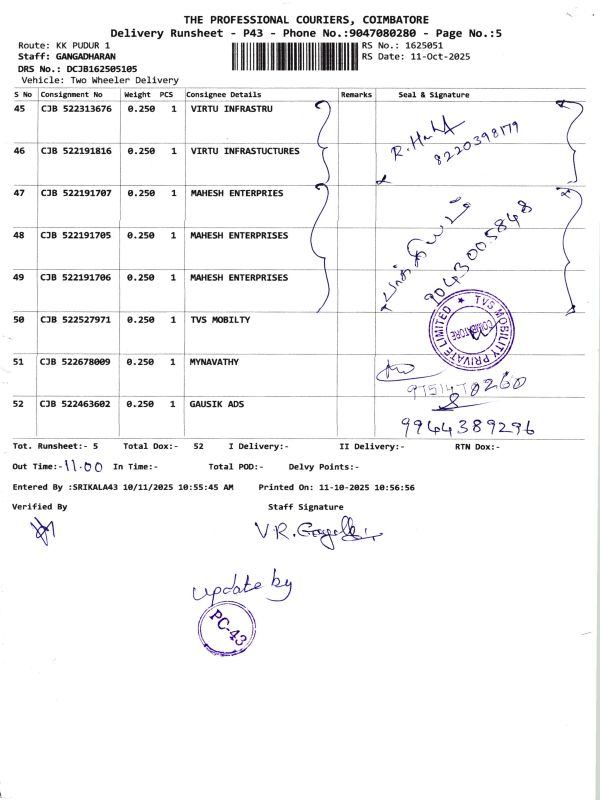 THE PROFESSIONAL COURIERS, COIMBATORE
Delivery Runsheet - P43 - Phone No.:9047080280 - Page No.:5
Route: KK PUDUR 1 RS No.: 1625051
Staff: GANGADHARAN RS Date: 11-Oct-2025
DRS No.: DCJB162505105
Vehicle: Two Wheeler Delivery
S No Consignment No Weight PCS Consignee Details Remarks Seal & Signature
45 CJB 522313676 0.250 1 VIRTU INFRASTRU
8220398179
46 CJB 522191816 0.250 1 VIRTU INFRASTUCTURES
47 CJB 522191707 0.250 1 MAHESH ENTERPRIES
48 CJB 522191705 0.250 1 MAHESH ENTERPRISES
9043005848
49 CJB 522191706 0.250 1 MAHESH ENTERPRISES
50 CJB 522527971 0.250 1 TVS MOBILTY
TVS MOBILITY PRIVATE LIMITED
COIMBATORE
51 CJB 522678009 0.250 1 MYNAVATHY
52 CJB 522463602 0.250 1 GAUSIK ADS
9944389296
Tot. Runsheet:- 5 Total Dox:- 52 I Delivery:- II Delivery:- RTN Dox:-
Out Time:-11.00 In Time:- Total POD:- Delvy Points:-
Entered By :SRIKALA43 10/11/2025 10:55:45 AM Printed On: 11-10-2025 10:56:56
Verified By Staff Signature
update by
PC-43